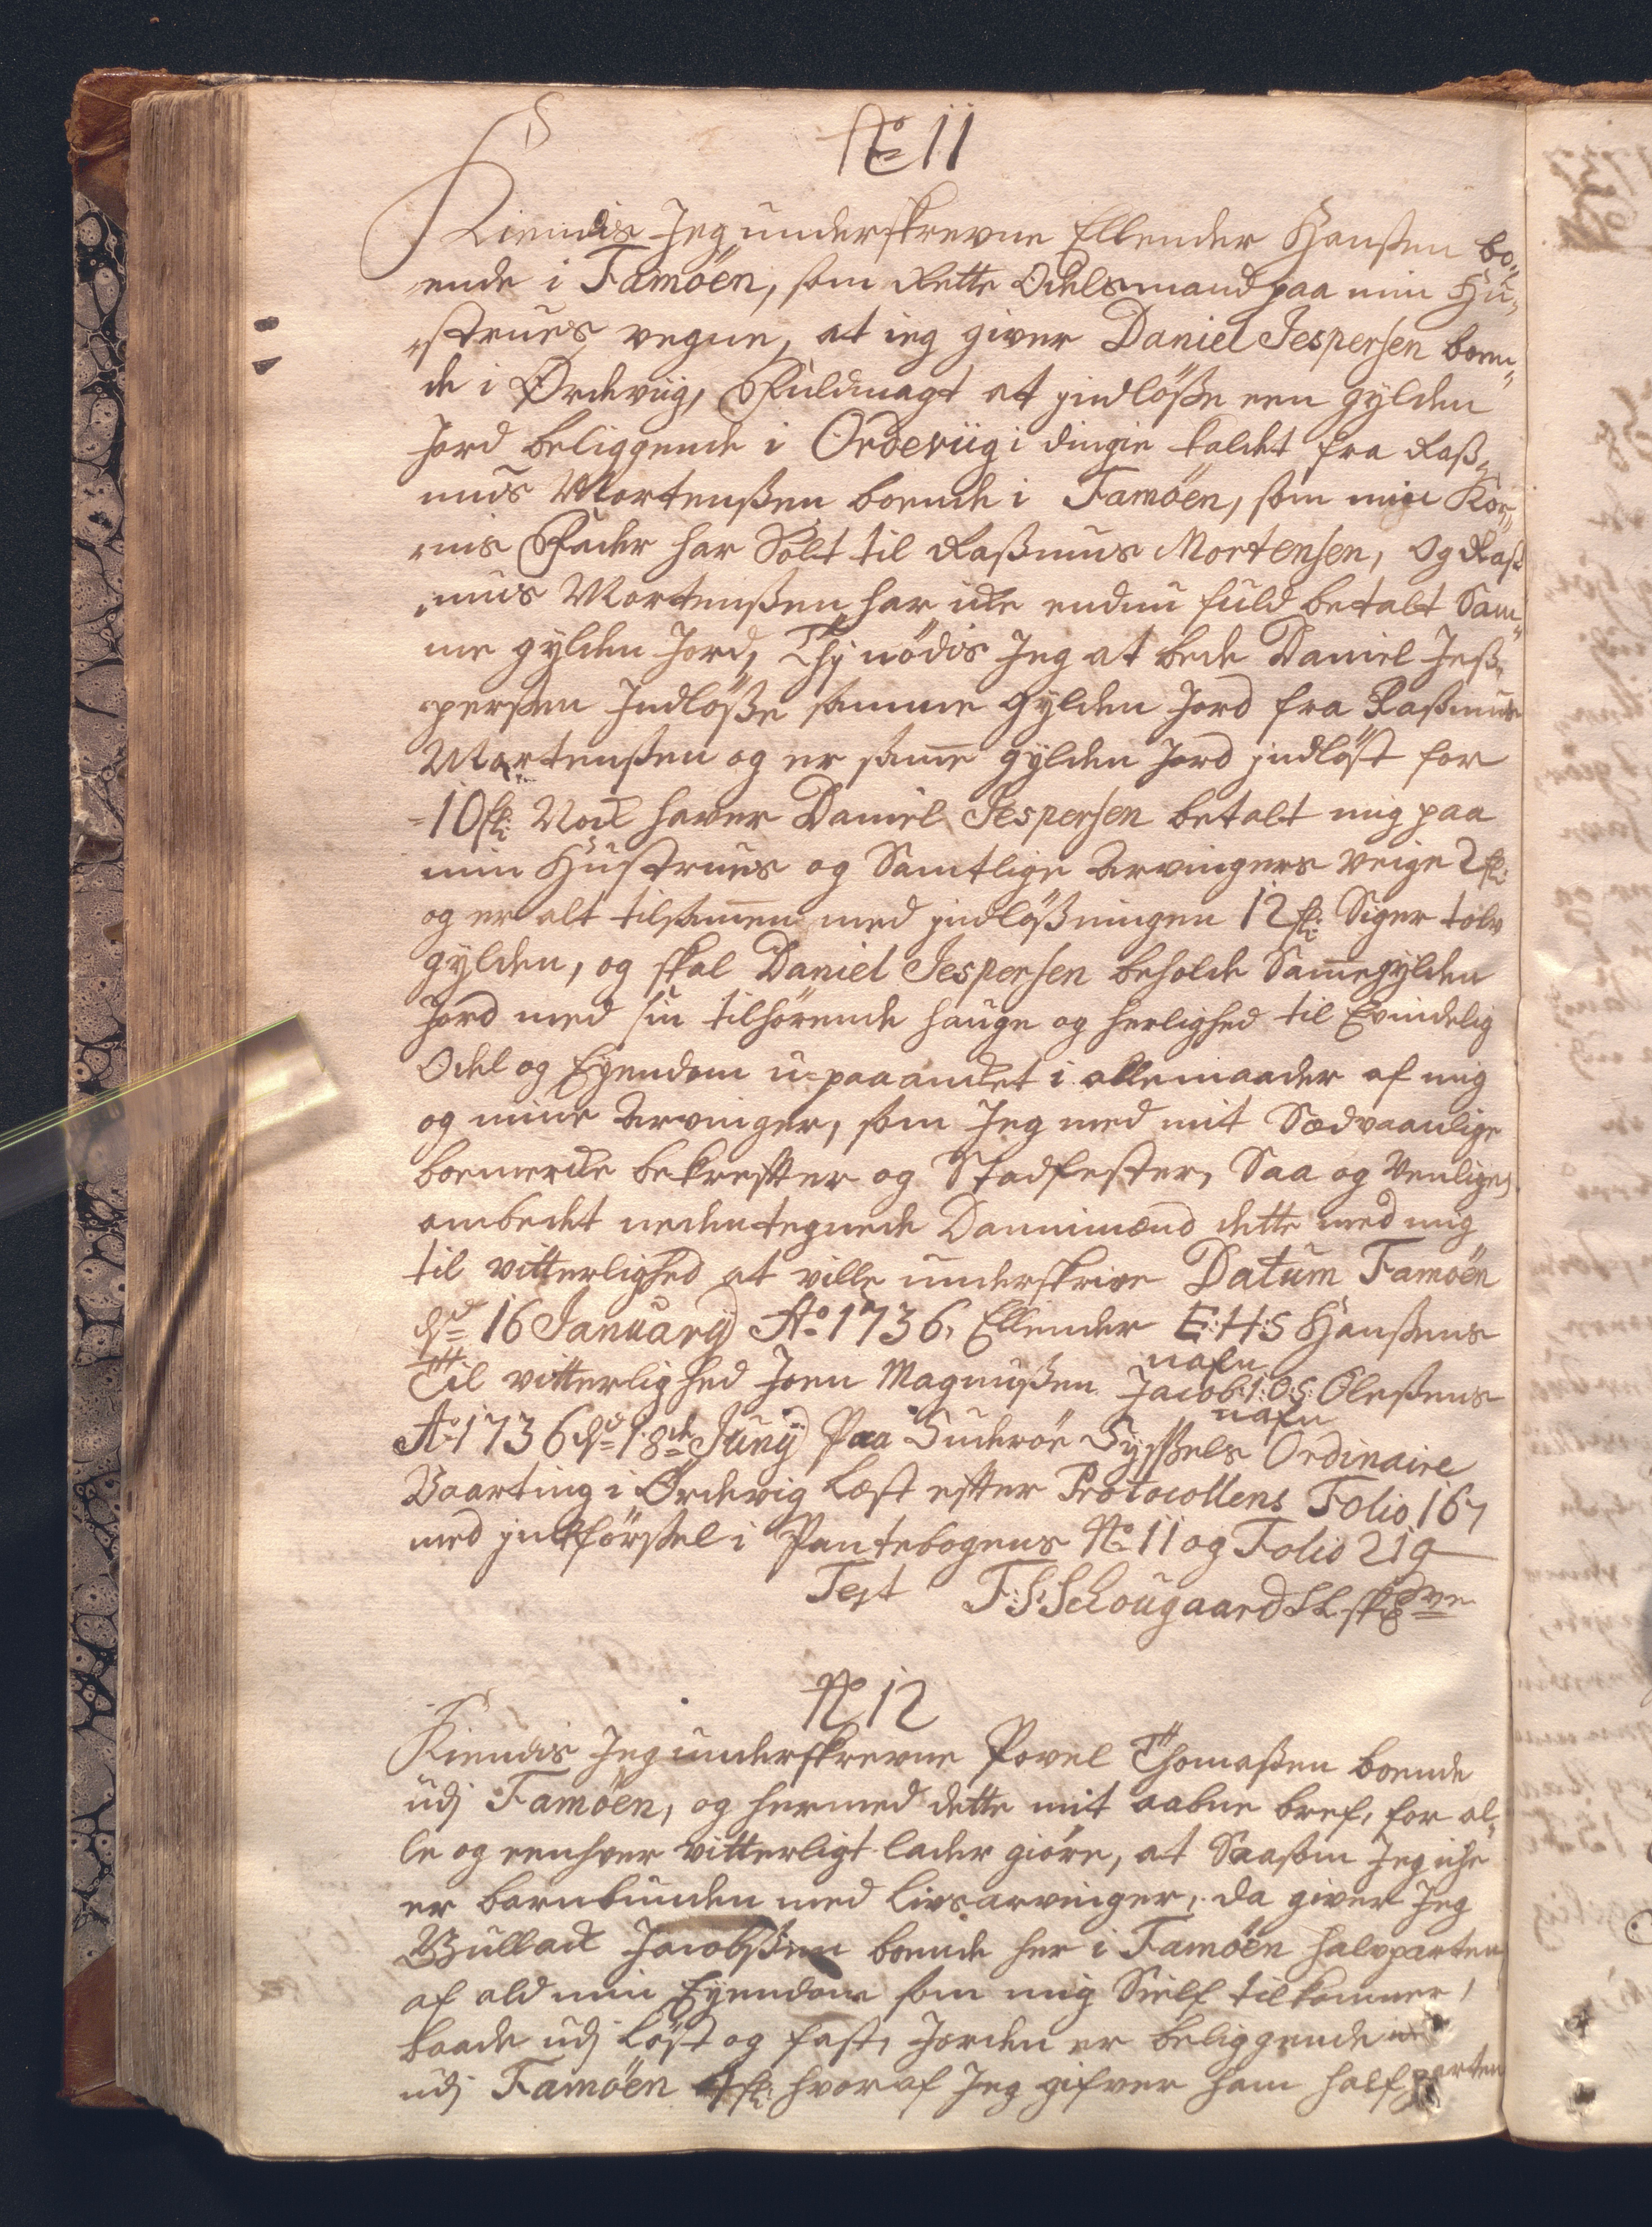 No 11
Kiendis Jeg underskrevne Ellender Hanßen bo„
ende i Famöen, som Rette Odelsmand paa min Hu„
„strues vegne, at ieg giver Daniel Jespersen boen„
de i Ordeviig, Fuldmagt at jndlöße een gylden
Jord beliggende i Ordeviig i dingie kaldet fra Raß„
mus Mortenßen boende i Famöen, som min Kor„
„nis Fader har Solt til Raßmus Mortensen, og Raß
„mus Mortenßen har icke endnu fuld betalt Sam„
me gylden Jord, Thj nödis Jeg at bede Daniel Jeß„
„perßen Jndlöße samme Gylden Jord fra Raßmus
Mortenßen og er sam̄e gylden Jord jndlöst for
10 fl: Nock haver Daniel Jespersen betalt mig paa
min Hustrues og Samtlige Arvingers veigne 2 fl:
og er alt tilsam̄en med jndlößningen 12 fl: Siger tolv
gylden, og skal Daniel Jespersen beholde Sam̄e gylden
Jord med sin tilhörende hauge og herlighed til Evindelig
Odel og Eyendom u-paaancket i allemaader af mig
og mine Arvinger, som Jeg med mit Sædvaanlige
boemercke bekrefter og Stadfester, Saa og venligen
ombedet nedentegnede Dannimænd dette med mig
til vitterlighed at ville underskrive Datum Famöen
d: 16 Januarij Ao 1736, Ellender E:H:S Hanßens
nafn
Til vitterlighed Joen Magnußen Jacob: I:O:S: Oleßens
nafn
Ao 1736 d: 18de Junij Paa Suderöe Syßels Ordinaire
Vaarting i Ordevig Læst efter Protocollens Folio 167
med jndförßel i Pantebogens No 11 og Folio 219
Test F:S:Schougaard SL skr
No 12
Kiendis Jeg underskrevne Povel Thomaßen boende
udj Famöen, og hermed dette mit aabne bref, for al„
le og eenhver vitterligt lader giöre, at Saasom Jeg icke
er barnbunden med livsarvinger, da giver Jeg
Bullack Jacobßen boende her i Famöen halvparten
af ald min Eyendom som mig Sielf tilkommer,
baade udj Löst og fast, Jorden er beliggende
udj Famöen 4 fl: hvoraf Jeg gifver ham halfparten